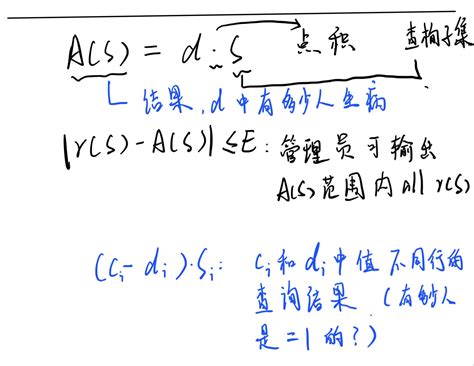 A(S) = d·S 点积 查询子集
结果, d 中有多少人生病
|r(S) - A(S)| ≤ E: 管理员可输出
A(S) 范围内 all r(S)
(cᵢ - dᵢ)·Sᵢ: cᵢ 和 dᵢ 中值不同行的
查询结果 (有多少人
是 = 1 的?)